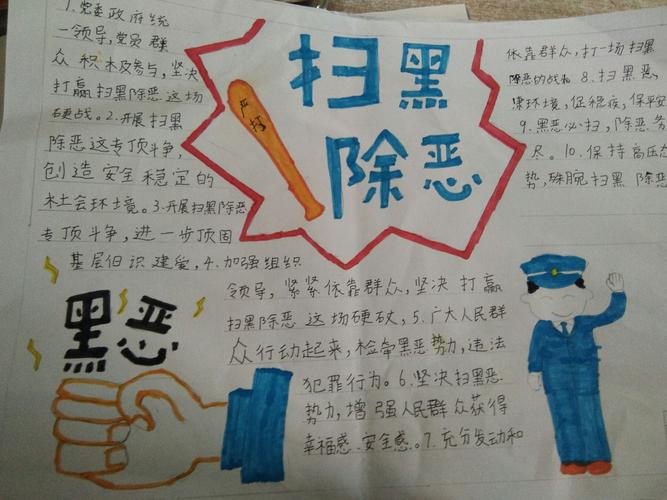 1.党委政府统
一领导,党员群
众积极参与,坚决
打赢扫黑除恶这场
硬战。2.开展扫黑
除恶这专项斗争,
创造安全稳定的
社会环境。3.开展扫黑除恶
专项斗争,进一步顶固
基层组织建设,4.加强组织
严打
扫黑
除恶
黑恶
领导,紧紧依靠群众,坚决打赢
扫黑除恶这场硬仗,5.广大人民群
众行动起来,检举黑恶势力,违法
犯罪行为。6.坚决扫黑恶
势力,增强人民群众获得
幸福感、安全感。7.充分发动和
依靠群众,打一场扫黑
除恶的战 8.扫黑恶,
环境,促稳疫,保平安
9.黑恶必扫,除恶务
尽。10.保持高压态
势,殊腕扫黑除恶